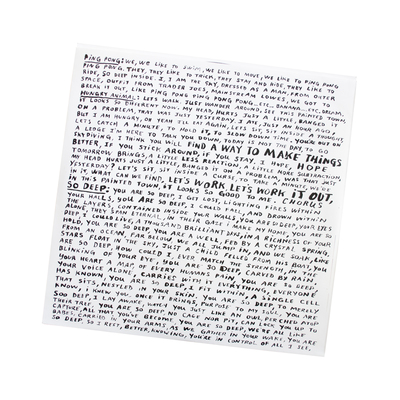 PING PONG: WE, WE LIKE TO SWIM, WE LIKE TO MOVE, WE LIKE TO PING PONG
PING PONG. THEY, THEY LIKE TO TRICK, THEY STAY AND HIDE, AND ROLL AND
RIDE, SO DEEP INSIDE. I, I AM THE SKY, DRESSED AS A MAN, FROM OUTER
SPACE, OUTFIT FROM TRADER JOES, MAINSTREAM LOWES, WE GOT TO
BREAK IT OUT, LIKE PING PONG PING PONG PONG, ETC. BANANA... ETC. DREAM
HUNGRY ANIMAL: LETS WALK, JUST WANDER AROUND, SEE THIS PAINTED TOWN.
IT LOOKS SO DIFFERENT NOW. MY HEAD, HURTS JUST A LITTLE, BANGED IT
ON A PROBLEM, THAT WAS JUST YESTERDAY. I ATE, JUST AN HOUR AGO,
BUT I AM HUNGRY, OH YEAH I'LL ADMIT IT, LETS SIT, SIT INSIDE A
LET'S CATCH A MINUTE, TO HOLD IT, TO SLOW DOWN TIME, YOU'RE ON
A LEDGE I'M HERE WHEN YOU JUMP DOWN, TODAY IS NOT THE DAY, TO GO
SKYDIVING. I AM WAITING AROUND, TO FIND A WAY TO MAKE THINGS
BETTER, IF YOU STICK AROUND, IF YOU STAY, I HOPE
TOMORROW BRINGS, A LITTLE LESS REACTION, A LITTLE MORE SURPRISE,
MY HEAD HURTS JUST A LITTLE, BANGED IT ON A PROBLEM, THAT WAS JUST
YESTERDAY? LET'S SIT, SIT INSIDE A CURSE, TO TAKE A MINUTE, WE'RE
IN IT, WHAT CAN WE FIND, LET'S WORK, LET'S WORK IT OUT,
IN THIS PAINTED TOWN, IT LOOKS SO GOOD TO ME. CHORUS
SO DEEP: YOU ARE SO DEEP, I GET LOST, LIGHTING FIRES WITHIN
YOUR WALLS, YOU ARE SO DEEP, I COULD FALL, AND DROWN WITHIN
THE LAYERS, CONTAINED INSIDE YOUR WALLS, YOU ARE SO DEEP, YOUR EYES
ALONE, THEY SHINE ETERNAL, IN THEIR GAZE I MAKE MY HOME, YOU ARE SO
DEEP, I COULD LIVE, A THOUSAND BRILLIANT LIVES, IN A RICHNESS OF YOUR
HOLD, YOU ARE SO DEEP, YOU ARE A WELL, FED BY CRYSTAL SPRING,
FROM AN OCEAN, FAR BELOW, WE ALL JUMP IN, AND WE SOAK, LIKE
STARS FLOAT IN THE SKY, YOU ARE SO DEEP, FALLEN FROM HIS BOAT, YOU
ARE SO DEEP, HOW COULD I, EVER MATCH THE STRENGTH, IN THE
BLINKING OF YOUR EYE, YOU ARE SO DEEP, CARVED BY RAIN,
YOUR HEART A MAP, OF EVERY HUMAN PAIN, YOU ARE SO DEEP,
YOUR VOICE ALONE, CARRIES WITH IT EVERYTHING, EVERYONE
HAS KNOWN, YOU ARE SO DEEP, I FIT WITHIN, A SINGLE CELL
THAT SITS, NESTLED IN YOUR SKIN, YOU ARE SO DEEP, TO MERELY
KNOW, I KNEW YOU, ONCE IT BRINGS, PURPOSE TO MY SOUL, YOU ARE
SOO DEEP, I LAY AWAKE, WHILE YOU JUST LIKE AN OWL, PERCHED ATOP
THEIR TREE, YOU ARE SO DEEP, NO CAGE NOR PIT, CAN LOCK YOU UP TO
CAPTURE, ALL THAT YOU'VE BECOME, YOU ARE SO DEEP, WE'RE ALL LIKE
BABES, CARRIED IN YOUR ARMS, AS WE GATHER IN YOUR WAKE, YOU ARE
SO DEEP, SO I REST, BETTER, KNOWING, YOU'RE IN CONTROL OF ALL I SEE.